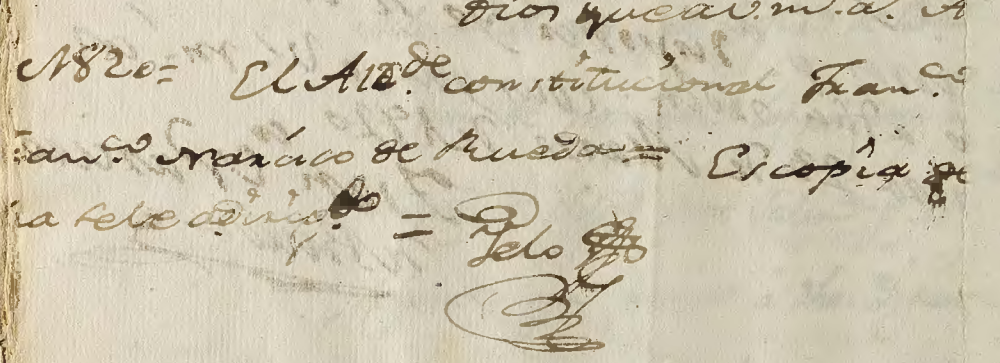 Dios que a V. m. a.
1820= El Alc.de constitucional Fran.co
Fran.co Narciso de Rueda = Es copia de
=
Telo